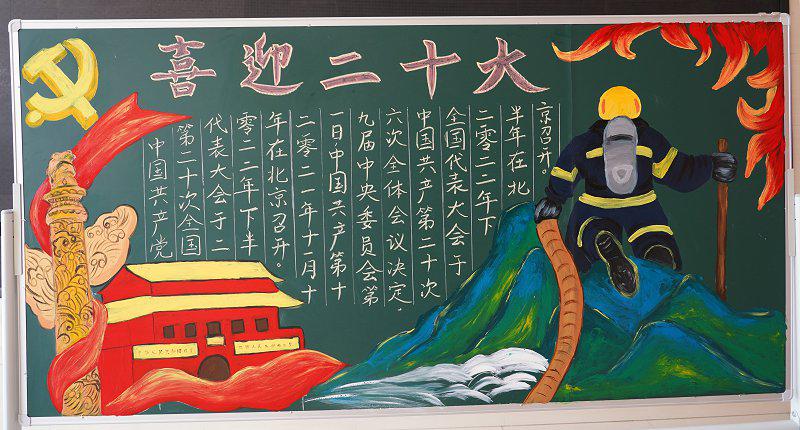 喜迎二十大
中国共产党
第二十次全国
代表大会于二
零二二年下半
年在北京召开。
二零二一年十一月十
一日中国共产第十
九届中央委员会第
六次全体会议决定,
中国共产第二十次
全国代表大会于
二零二二年下
半年在北
京召开。